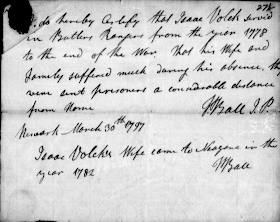 278
I do hereby Certify that Isaac Volck served
in Butlers Rangers from the year 1778
to the end of the War, That his Wife and
family suffered much during his absence, they
were sent prisoners a considerable distance
from Home
Ball J.P.
Newark March 30th 1797
Isaac Volckes Wife came to Niagara in the
year 1782
Ball